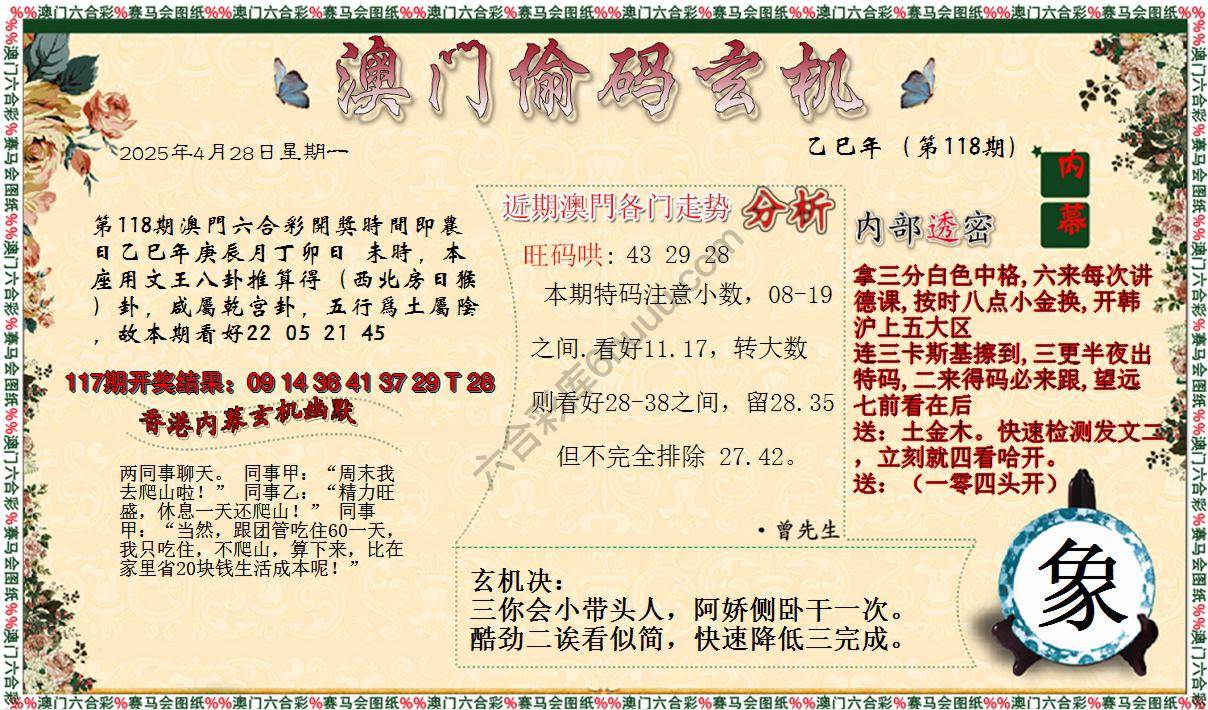 %%澳门六合彩%赛马会图纸%%澳门六合彩%赛马会图纸%%澳门六合彩%赛马会图纸%%澳门六合彩%赛马会图纸%%澳门六合彩%赛马会图纸%%澳门六合彩%赛马会图纸%%
澳门偷码玄机
2025年4月28日星期一
乙巳年（第118期）
内幕
第118期澳門六合彩開獎時間即農
日乙巳年庚辰月丁卯日 未時，本
座用文王八卦推算得（西北房日猴
）卦，咸屬乾宫卦，五行爲土屬陰
，故本期看好22 05 21 45
117期开奖结果：09 14 36 41 37 29 T 28
香港内幕玄机幽默
两同事聊天。 同事甲：“周末我
去爬山啦！” 同事乙：“精力旺
盛，休息一天还爬山！” 同事
甲：“当然，跟团管吃住60一天，
我只吃住，不爬山，算下来，比在
家里省20块钱生活成本呢！”
近期澳門各门走势 分析
旺码哄: 43 29 28
本期特码注意小数，08-19
之间.看好11.17，转大数
则看好28-38之间，留28.35
但不完全排除 27.42。
·曾先生
内部透密
拿三分白色中格,六来每次讲
德课,按时八点小金换,开韩
沪上五大区
连三卡斯基擦到,三更半夜出
特码,二来得码必来跟,望远
七前看在后
送：土金木。快速检测发文二
，立刻就四看哈开。
送：（一零四头开）
玄机决：
三你会小带头人，阿娇侧卧干一次。
酷劲二诶看似简，快速降低三完成。
象